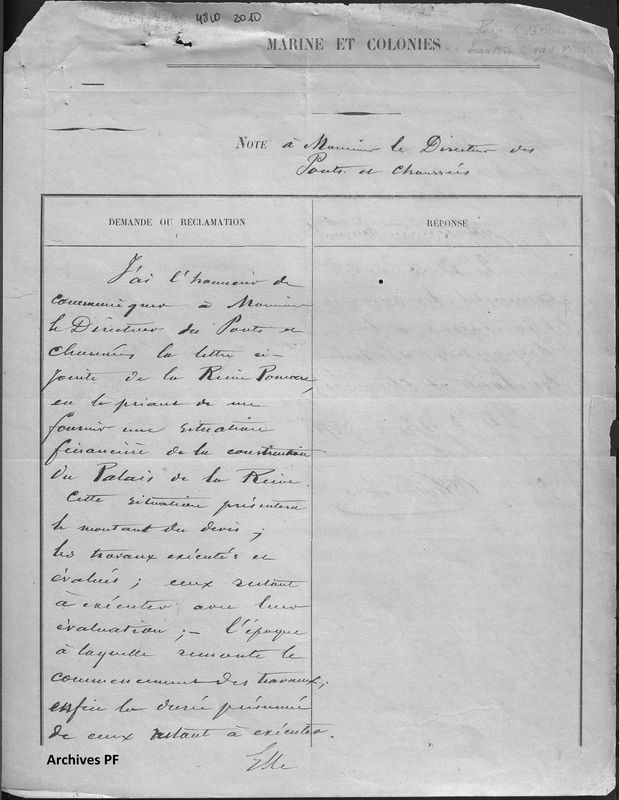 4810 2010
MARINE ET COLONIES
NOTE à Monsieur le Directeur des
Ponts et chaussées
DEMANDE OU RÉCLAMATION
1
RÉPONSE
2
J'ai l'honneur de
communiquer à Monsieur
le Directeur des Ponts et
chaussées la lettre ci-
jointe de la Reine Pomare,
en le priant de me
fournir une situation
financière de la construction
du Palais de la Reine.
Cette situation présentera
le montant du devis ;
les travaux exécutés et
évalués ; ceux restant
à exécuter avec leur
évaluation ; – l'époque
à laquelle remonte le
commencement des travaux ;
enfin la durée présumée
de ceux restant à exécuter.
Elle
Archives PF